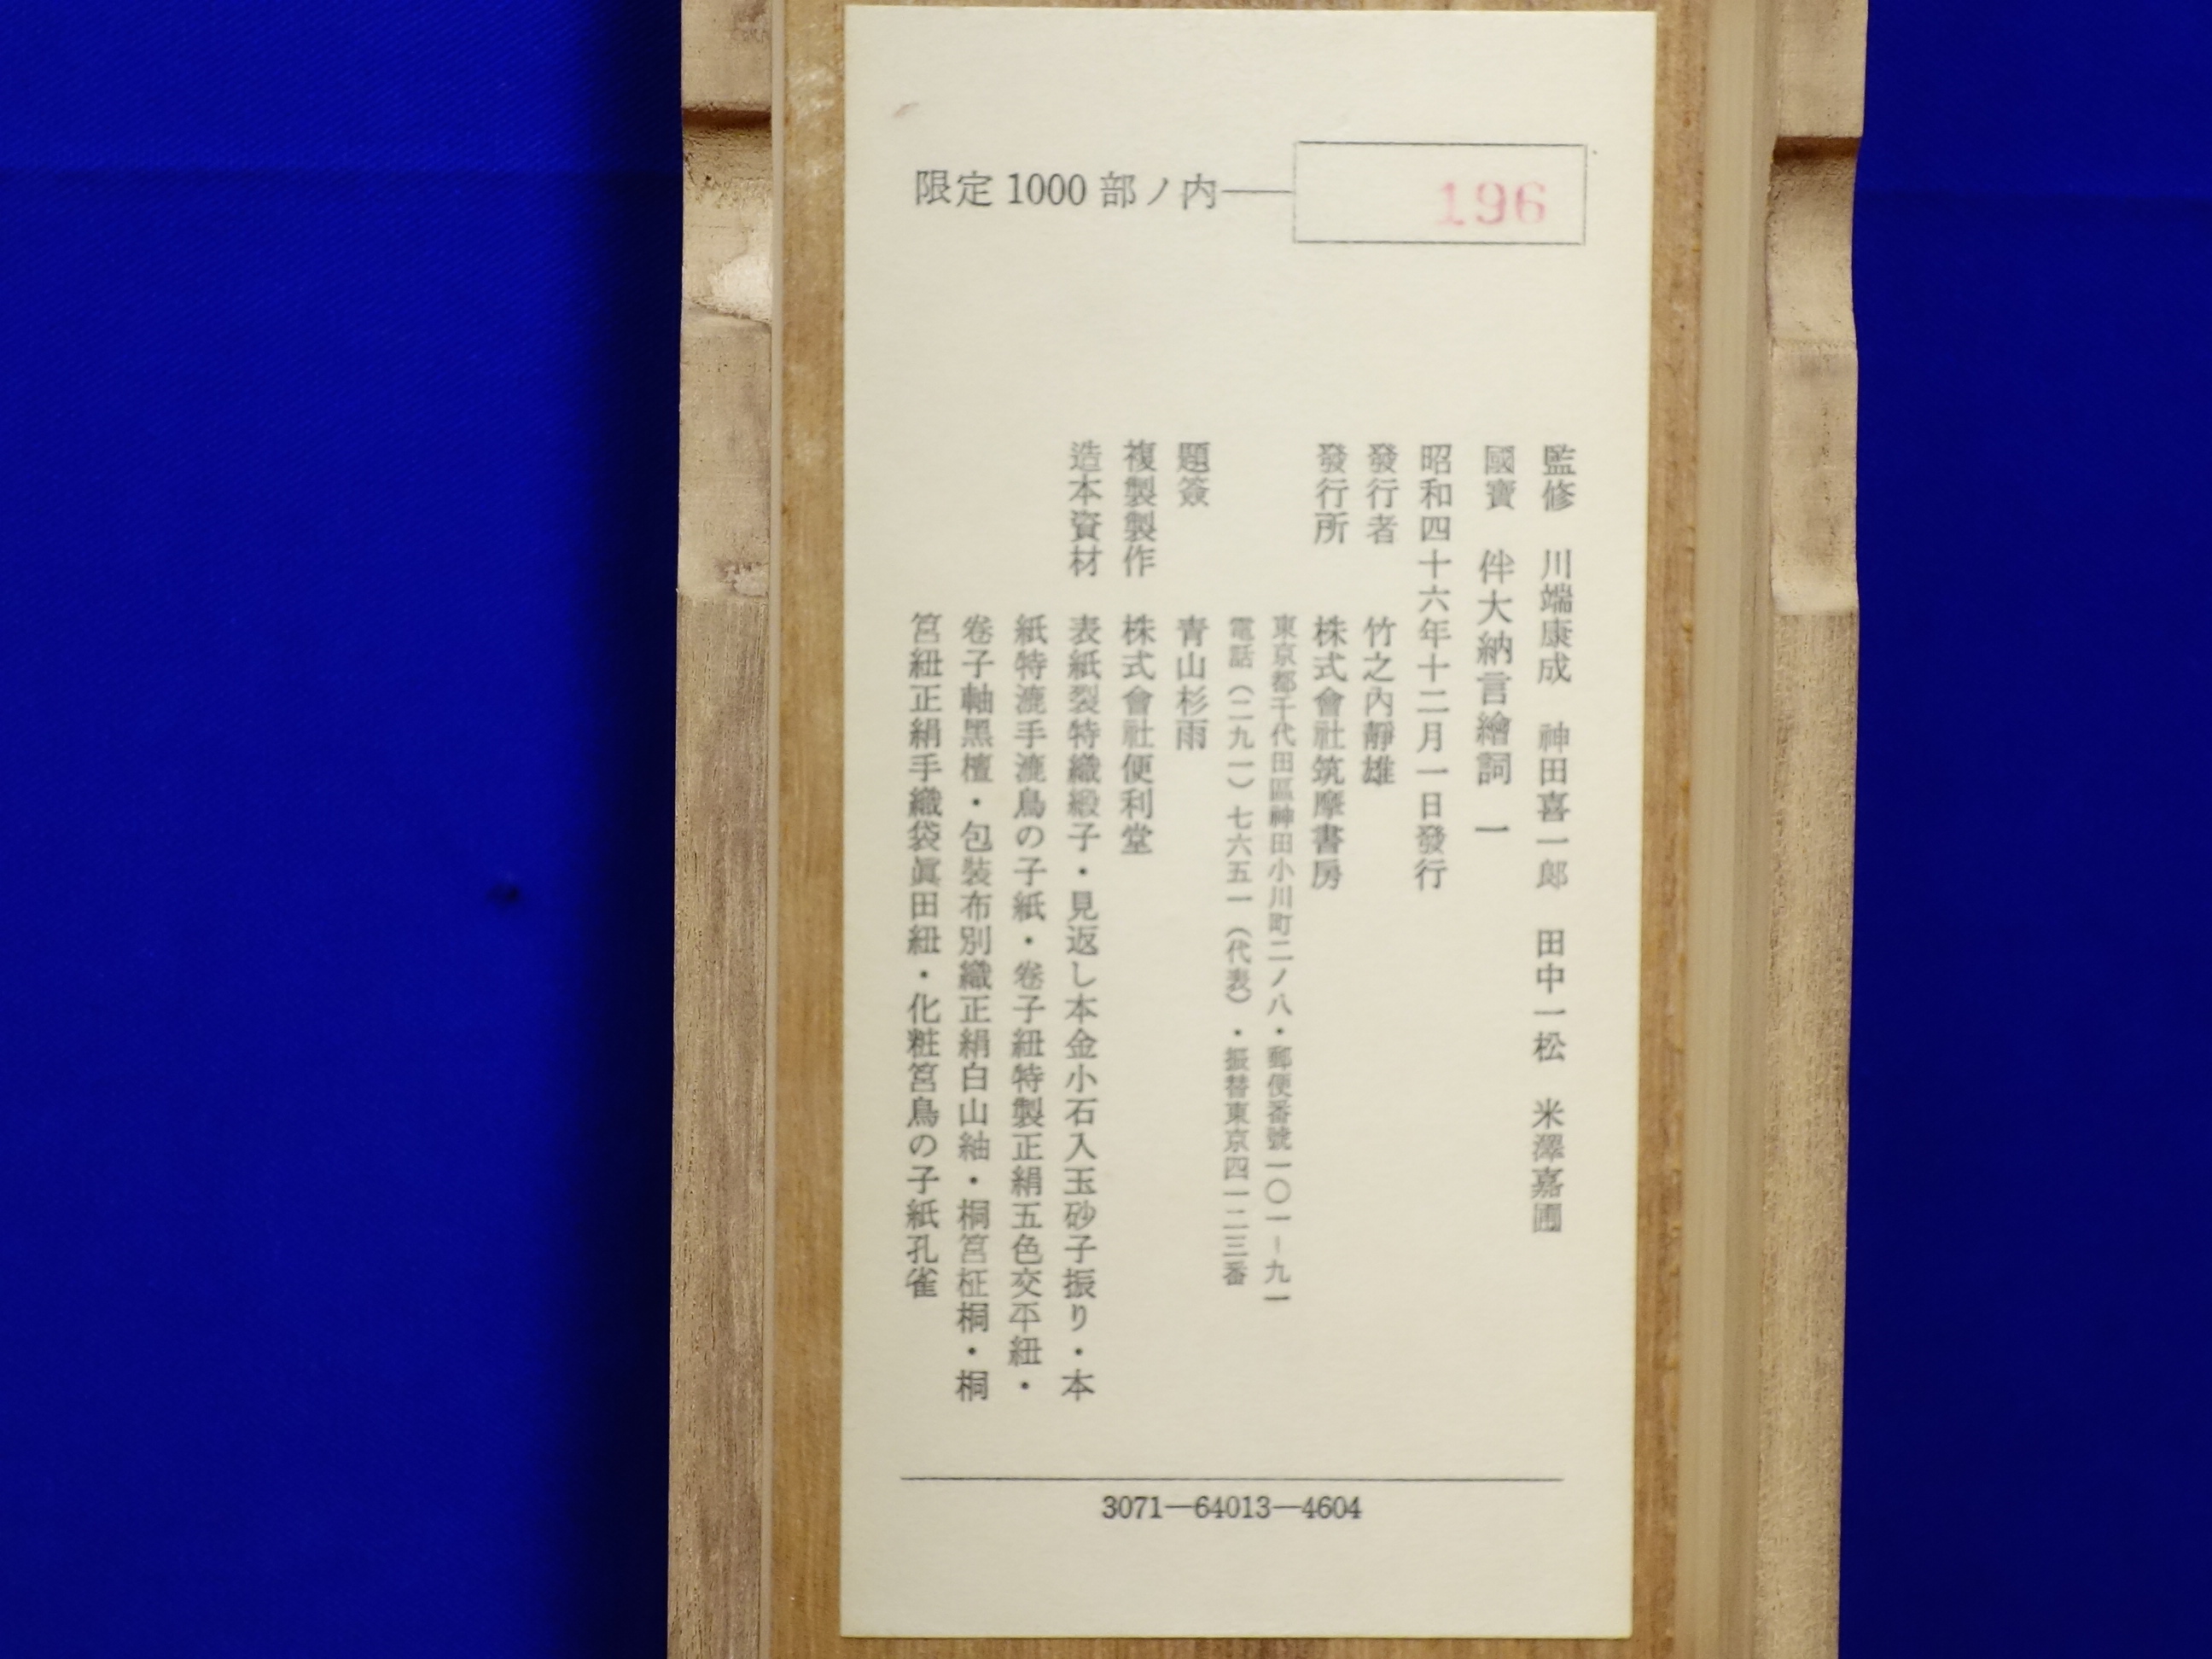 限定1000部ノ内―196
監修　川端康成　神田喜一郎　田中一松　米澤嘉圃
國寶　伴大納言繪詞　一
昭和四十六年十二月一日發行
發行者　竹之內靜雄
發行所　株式會社筑摩書房
東京都千代田區神田小川町二ノ八・郵便番號一〇一−九一
電話（二九一）七六五一（代表）・振替東京四一二三番
題簽　青山杉雨
複製製作　株式會社便利堂
造本資材　表紙裂特織緞子・見返し本金小石入玉砂子振り・本
紙特漉手漉鳥の子紙・卷子紐特製正絹五色交平紐・
卷子軸黑檀・包裝布別織正絹白山紬・桐筥柾桐・桐
筥紐正絹手織袋眞田紐・化粧筥鳥の子紙孔雀
3071―64013―4604